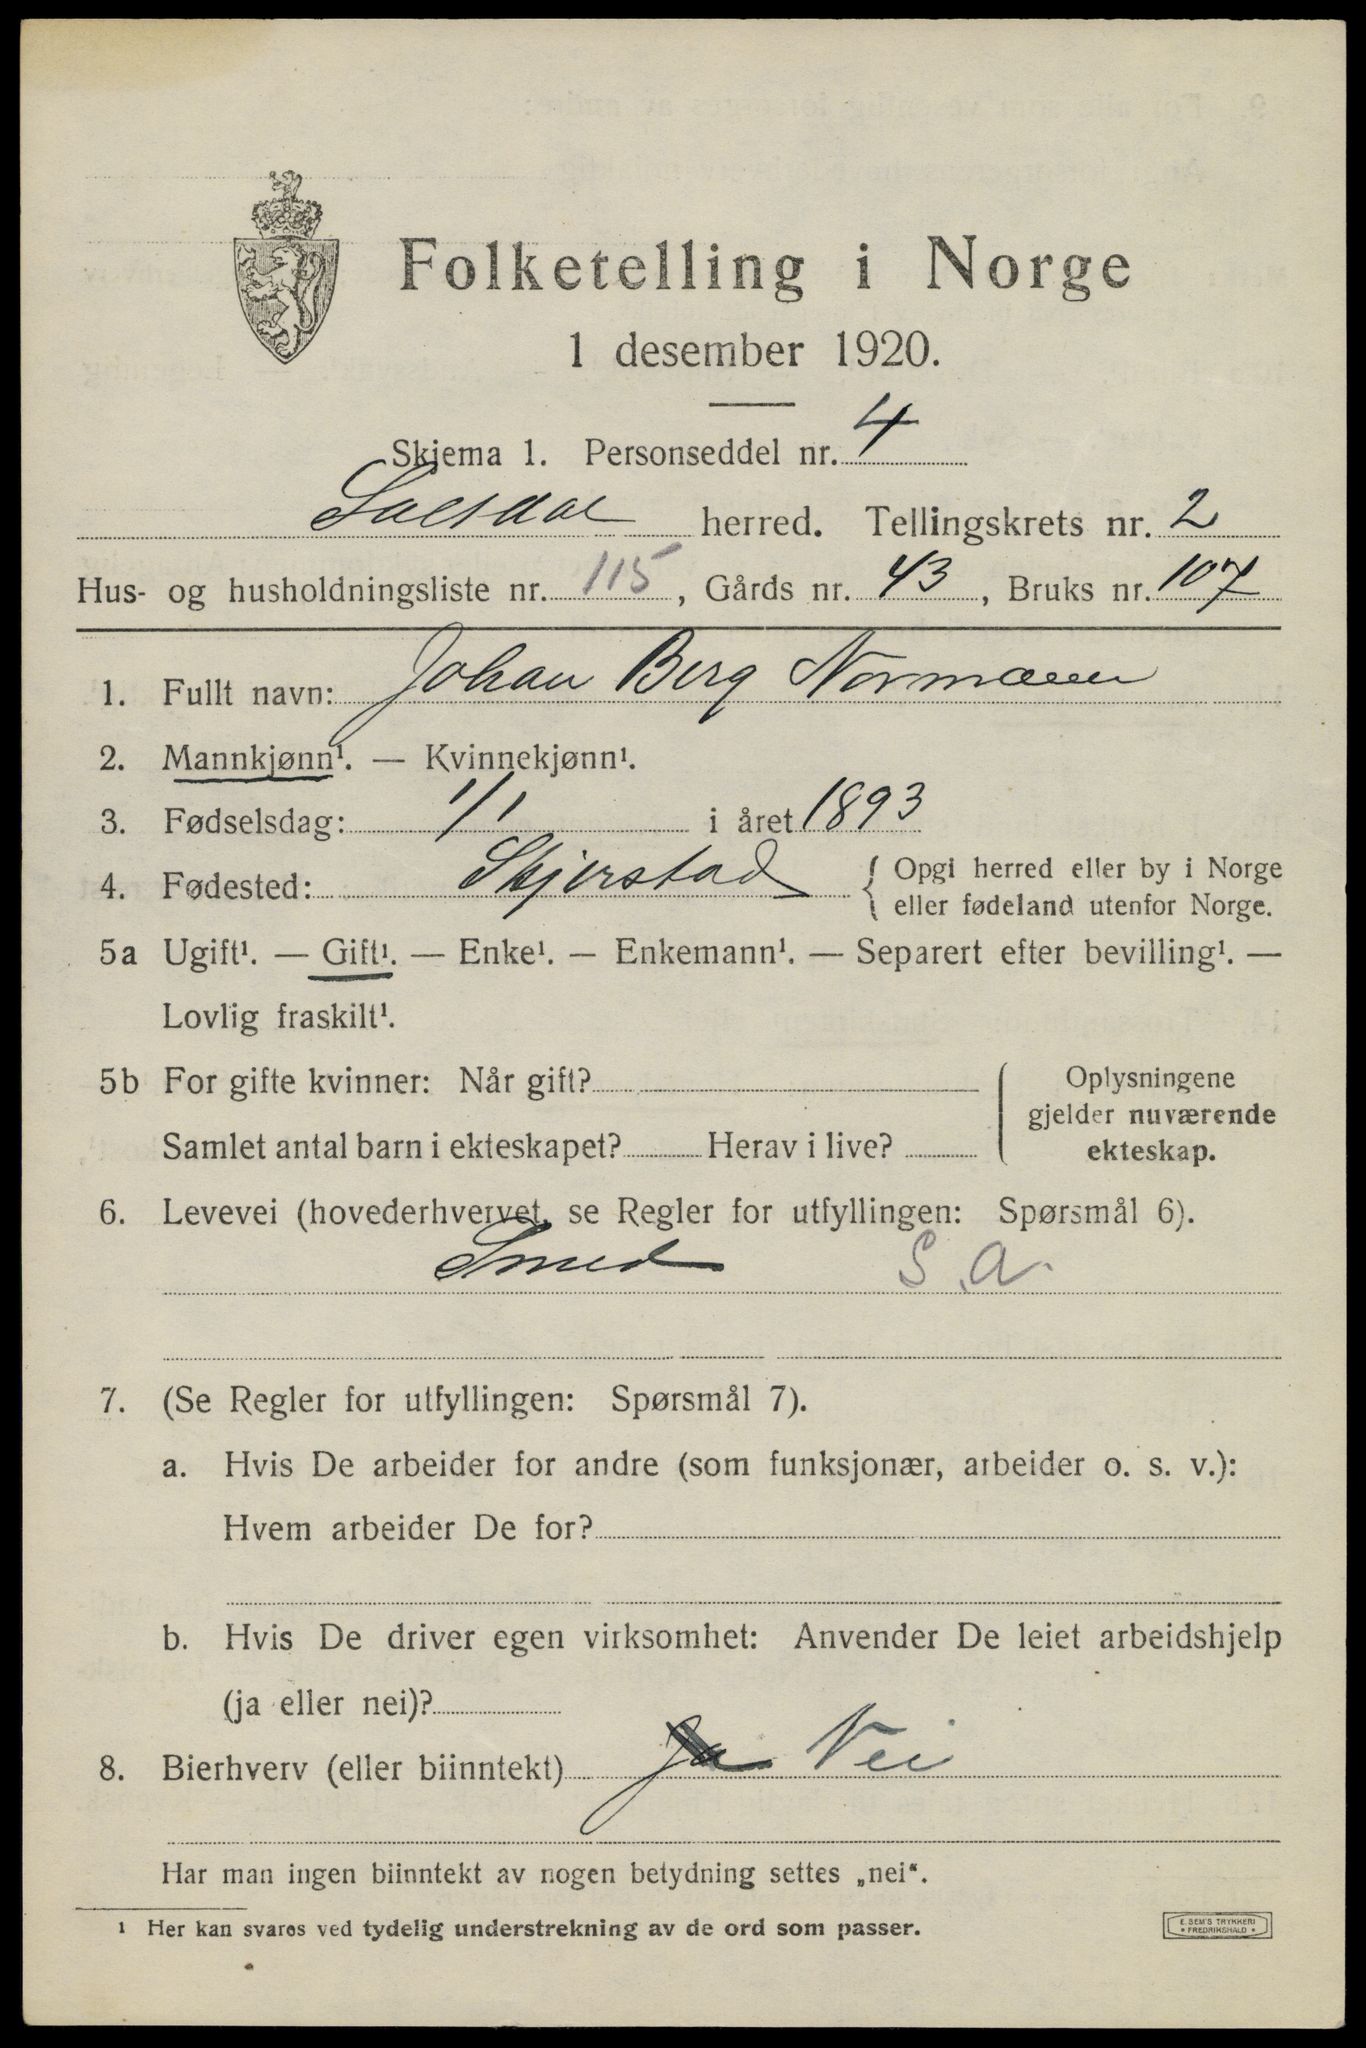 Folketelling i Norge
1 desember 1920.
Skjema 1. Personseddel nr. 4
Saltdal herred. Tellingskrets nr. 2
Hus- og husholdningsliste nr. 115, Gårds nr. 43, Bruks nr. 107
1. Fullt navn: Johan Berg Normann
2. Mannkjønn¹. — Kvinnekjønn¹.
3. Fødselsdag: 1/1 i året 1893
4. Fødested: Skjerstad { Opgi herred eller by i Norge
eller fødeland utenfor Norge.
5a Ugift¹. — Gift¹. — Enke¹. — Enkemann¹. — Separert efter bevilling¹. —
Lovlig fraskilt¹.
5b For gifte kvinner: Når gift?
Samlet antal barn i ekteskapet? Herav i live?
Oplysningene
gjelder nuværende
ekteskap.
6. Levevei (hovederhvervet, se Regler for utfyllingen: Spørsmål 6).
Smed S.a.
7. (Se Regler for utfyllingen: Spørsmål 7).
a. Hvis De arbeider for andre (som funksjonær, arbeider o. s. v.):
Hvem arbeider De for?
b. Hvis De driver egen virksomhet: Anvender De leiet arbeidshjelp
(ja eller nei)?
8. Bierhverv (eller biinntekt) Ja Nei
Har man ingen biinntekt av nogen betydning settes „nei“.
¹ Her kan svares ved tydelig understrekning av de ord som passer.
E. SEM'S TRYKKERI
FREDRIKSHALD